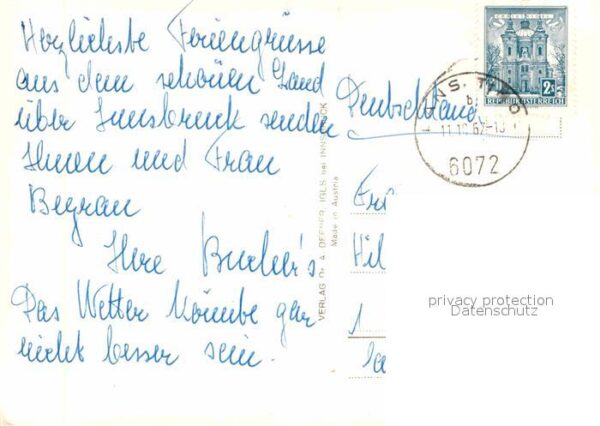 Herzlichste Feriengrüsse
aus dem schönen Land
über Innsbruck senden
Ihnen und Frau
Ihre Bucher's
Das Wetter könnte gar
nicht besser sein.
VERLAG Dr. A. DEFNER, IGLS bei INNSBRUCK
Made in Austria
Deutschland
2S
REPUBLIK ÖSTERREICH
NS. TIROL
b
6072
Hil
1
privacy protection
Datenschutz